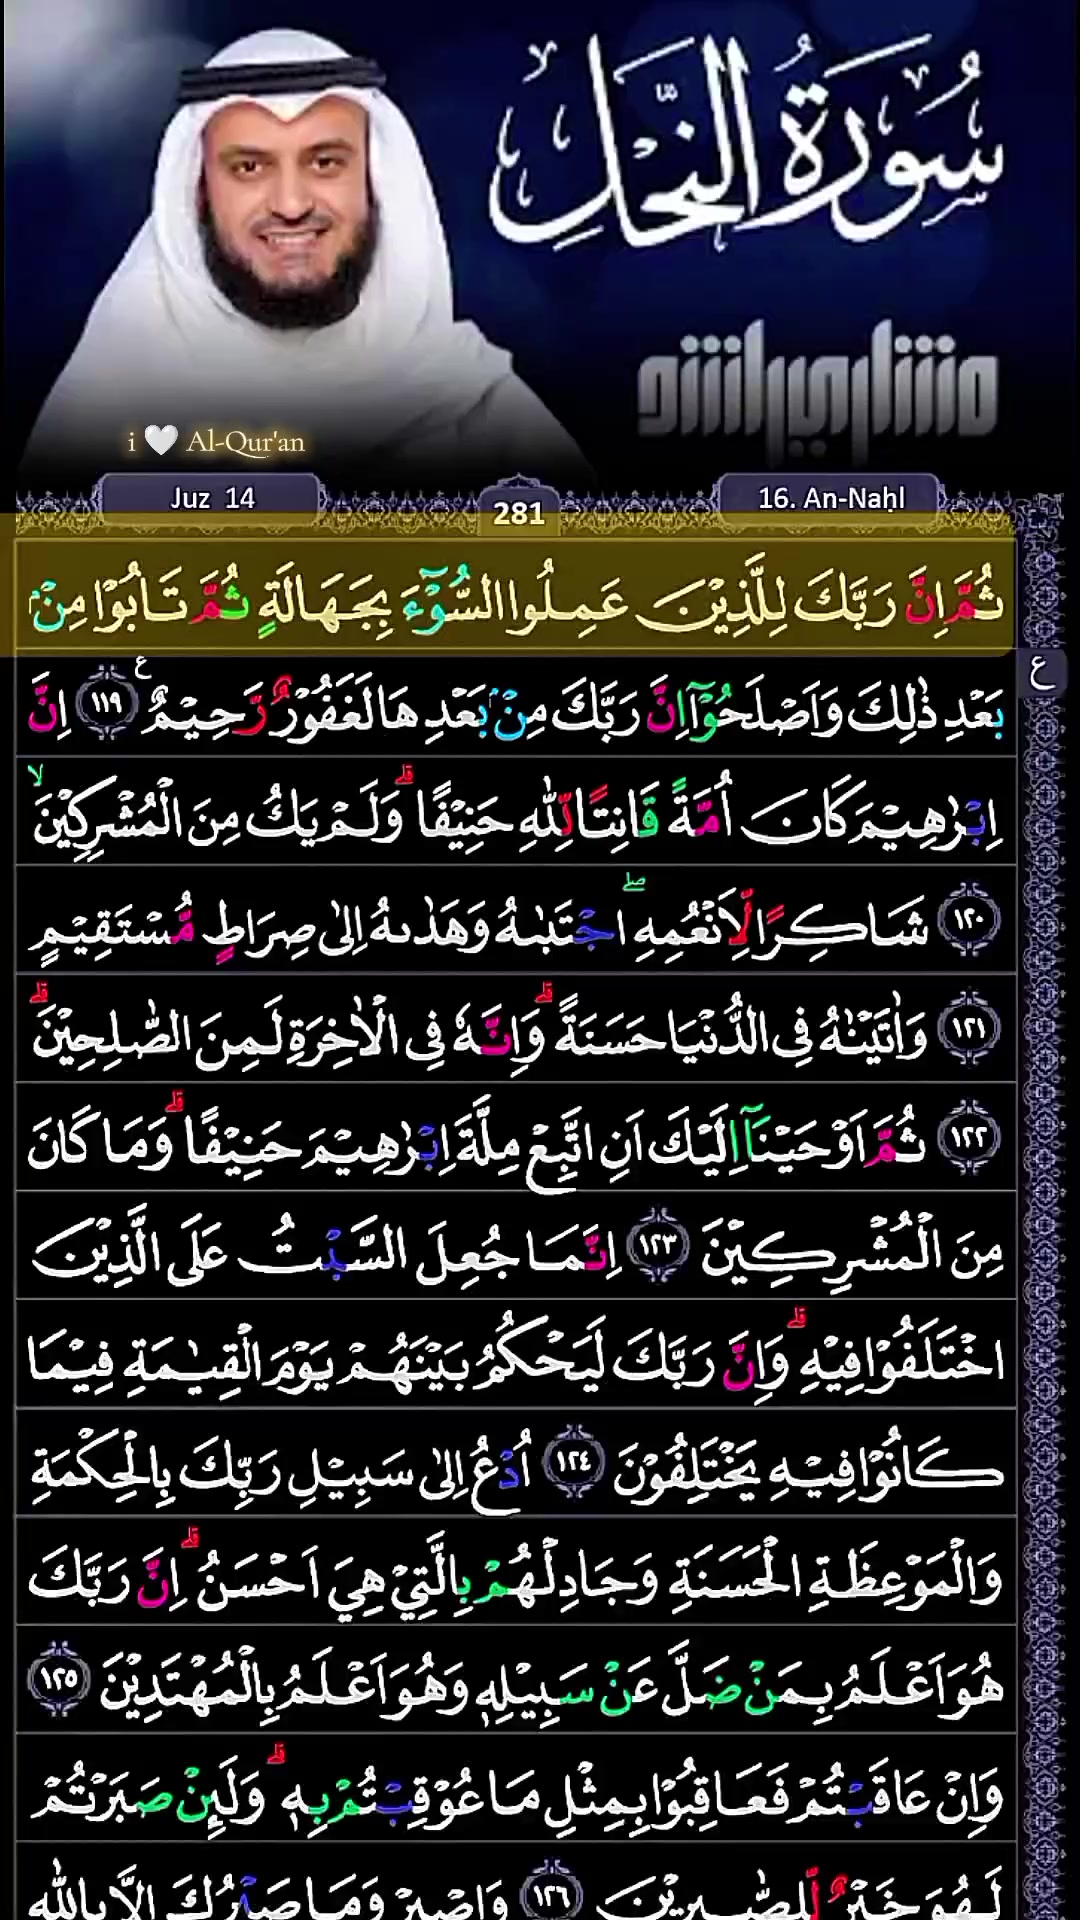 سُورَةُ النَّحْلِ
مشاري راشد
i 🤍 Al-Qur'an
Juz 14
281
16. An-Naḥl
ثُمَّ اِنَّ رَبَّكَ لِلَّذِيْنَ عَمِلُوا السُّوْۤءَ بِجَهَالَةٍ ثُمَّ تَابُوْا مِنْۢ
ع
بَعْدِ ذٰلِكَ وَاَصْلَحُوْٓا اِنَّ رَبَّكَ مِنْۢ بَعْدِهَا لَغَفُوْرٌ رَّحِيْمٌ ࣖ ١١٩ اِنَّ
اِبْرٰهِيْمَ كَانَ اُمَّةً قَانِتًا لِّلّٰهِ حَنِيْفًاۗ وَلَمْ يَكُ مِنَ الْمُشْرِكِيْنَۙ
١٢٠ شَاكِرًا لِّاَنْعُمِهٖۖ اجْتَبٰىهُ وَهَدٰىهُ اِلٰى صِرَاطٍ مُّسْتَقِيْمٍ
١٢١ وَاٰتَيْنٰهُ فِى الدُّنْيَا حَسَنَةًۗ وَاِنَّهٗ فِى الْاٰخِرَةِ لَمِنَ الصّٰلِحِيْنَۗ
١٢٢ ثُمَّ اَوْحَيْنَآ اِلَيْكَ اَنِ اتَّبِعْ مِلَّةَ اِبْرٰهِيْمَ حَنِيْفًاۗ وَمَا كَانَ
مِنَ الْمُشْرِكِيْنَ ١٢٣ اِنَّمَا جُعِلَ السَّبْتُ عَلَى الَّذِيْنَ
اخْتَلَفُوْا فِيْهِۗ وَاِنَّ رَبَّكَ لَيَحْكُمُ بَيْنَهُمْ يَوْمَ الْقِيٰمَةِ فِيْمَا
كَانُوْا فِيْهِ يَخْتَلِفُوْنَ ١٢٤ اُدْعُ اِلٰى سَبِيْلِ رَبِّكَ بِالْحِكْمَةِ
وَالْمَوْعِظَةِ الْحَسَنَةِ وَجَادِلْهُمْ بِالَّتِيْ هِيَ اَحْسَنُۗ اِنَّ رَبَّكَ
هُوَ اَعْلَمُ بِمَنْ ضَلَّ عَنْ سَبِيْلِهٖ وَهُوَ اَعْلَمُ بِالْمُهْتَدِيْنَ ١٢٥
وَاِنْ عَاقَبْتُمْ فَعَاقِبُوْا بِمِثْلِ مَا عُوْقِبْتُمْ بِهٖۗ وَلَىِٕنْ صَبَرْتُمْ
لَهُوَ خَيْرٌ لِّلصّٰبِرِيْنَ ١٢٦ وَاصْبِرْ وَمَا صَبْرُكَ اِلَّا بِاللّٰهِ